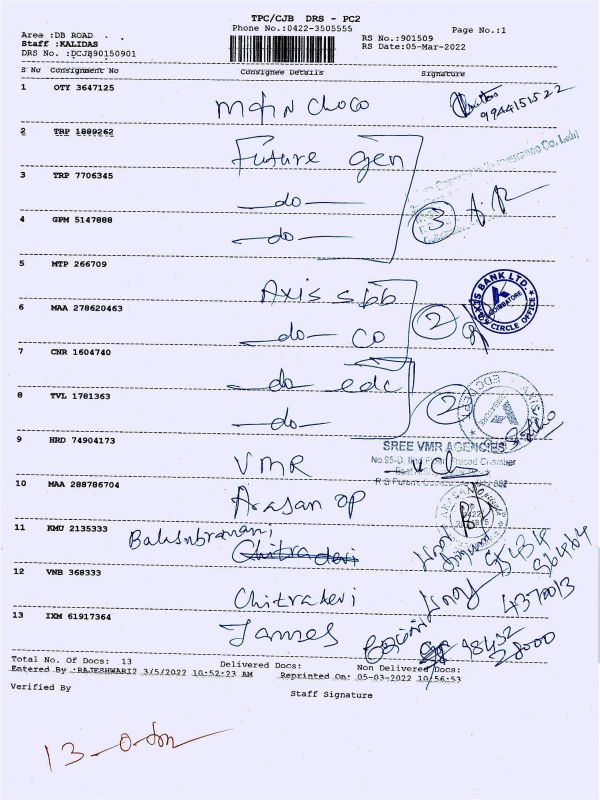 TPC/CJB DRS - PC2
Phone No.:0422-3505555
Page No.:1
Area :DB ROAD . .
Staff :KALIDAS
DRS No. :DCJB90150901
RS No.:901509
RS Date:05-Mar-2022
S No Consignment No Consignee Details Signature
1 OTY 3647125
Choco
2 TRP 1889262
Future gen
3 TRP 7706345
—do—
4 GPM 5147888
—do—
3
5 MTP 266709
Axis sbb
6 MAA 278620463
—do— CO
2
AXIS BANK LTD.
COIMBATORE
CIRCLE OFFICE
7 CNR 1604740
—do edc
8 TVL 1781363
—do—
2
9 HRD 74904173
VMR
SREE VMR AGENCIES
10 MAA 288786704
Arasan op
11 KMU 2135333
Balasubramani
Chitradevi
12 VNB 368333
Chitradevi
13 IXM 61917364
James
Total No. Of Docs: 13 Delivered Docs: Non Delivered Docs:
Entered By :RAJESHWARI2 3/5/2022 10:52:23 AM Reprinted On: 05-03-2022 10:56:53
Verified By
Staff Signature
13